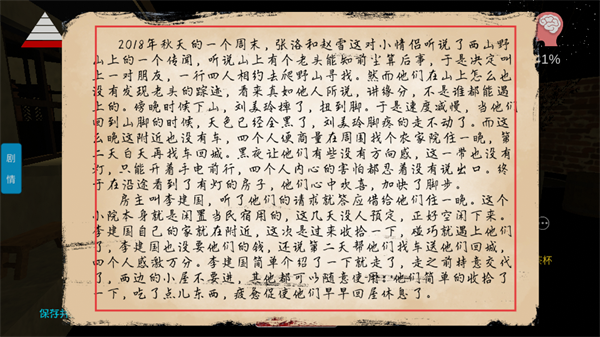 2018年秋天的一个周末，张洛和赵雪这对小情侣听说了西山野
山上的一个传闻，听说山上有个老头能知前尘算后事，于是决定叫
上一对朋友，一行四人相约去爬野山寻找。然而他们在山上怎么也
没有发现老头的踪迹，看来真如他人所说，讲缘分，不是谁都能遇
上的。傍晚时候下山，刘美玲摔了，扭到脚。于是速度减慢，当他们
回到山脚的时候，天色已经全黑了，刘美玲脚疼的走不动了。而这
么晚这附近也没有车，四个人便商量在周围找个农家院住一晚，第
二天白天再找车回城。黑夜让他们有些没有方向感，这一带也没有
灯，只能开着手电前行，四个人内心的害怕都忍着没有说出口。终
于在沿途看到了有灯的房子，他们心中欢喜，加快了脚步。
房主叫李建国，听了他们的请求就答应借给他们住一晚。这个
小院本身就是闲置当民宿用的，这几天没人预定，正好空闲下来。
李建国自己的家就在附近，这次是过来收拾一下，碰巧就遇上他们
了，李建国也没要他们的钱，还说第二天帮他们找车送他们回城，
四个人感激万分。李建国简单介绍了一下就走了，走之前特意交代
了，西边的小屋不要进，其他都可以随意使用。他们简单的收拾了
一下，吃了点儿东西，疲惫促使他们早早回屋休息了。
41%
剧
情